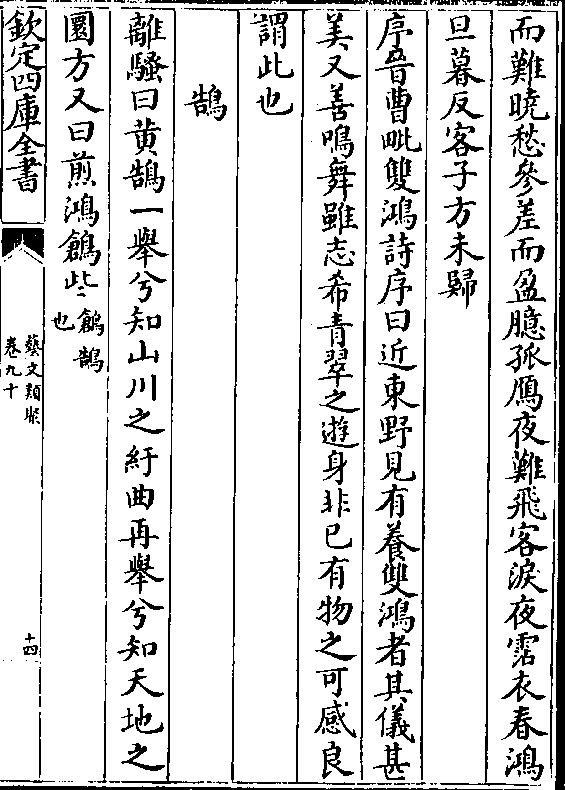 而難曉愁參差而盈臆孤鴈夜難飛客淚夜霑衣春鴻
旦暮反客子方未歸
序晉曹毗雙鴻詩序曰近東野見有養雙鴻者其儀甚
美又善鳴舞雖志希青翠之遊身非已有物之可感良
謂此也
鵠
離騷曰黄鵠一舉兮知山川之紆曲再舉兮知天地之
圜方又曰煎鴻鶬些鶬鵠也
欽定四庫全書
藝文類聚
卷九十
十四